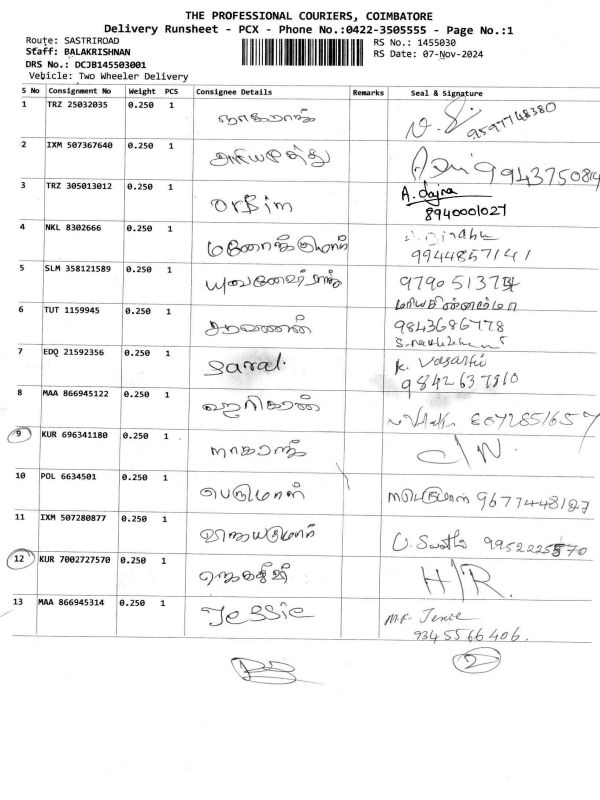 THE PROFESSIONAL COURIERS, COIMBATORE
Delivery Runsheet - PCX - Phone No.:0422-3505555 - Page No.:1
Route: SASTRIROAD RS No.: 1455030
Staff: BALAKRISHNAN RS Date: 07-Nov-2024
DRS No.: DCJB145503001
Vehicle: Two Wheeler Delivery
S No Consignment No Weight PCS Consignee Details Remarks Seal & Signature
1 TRZ 25032035 0.250 1 நாகராஜ் 9597748380
2 IXM 507367640 0.250 1
3 TRZ 305013012 0.250 1 Orfsin A. dajna
8940001027
4 NKL 8302666 0.250 1 மனோஜ்குமார்
9944857141
5 SLM 358121589 0.250 1 புவனேஸ்வரி
6 TUT 1159945 0.250 1 சரவணன் 9843686778
7 EDQ 21592356 0.250 1 Saral. K. Vasanthi
9842637910
8 MAA 866945122 0.250 1 ஹரிகரன்
9 KUR 696341180 0.250 1 நாகராஜ் C/N.
10 POL 6634501 0.250 1 பெருமாள்
11 IXM 507280877 0.250 1 விஜயகுமார் U. Swathi
12 KUR 7002727570 0.250 1 H/R.
13 MAA 866945314 0.250 1 Jessie
9345566406.
2